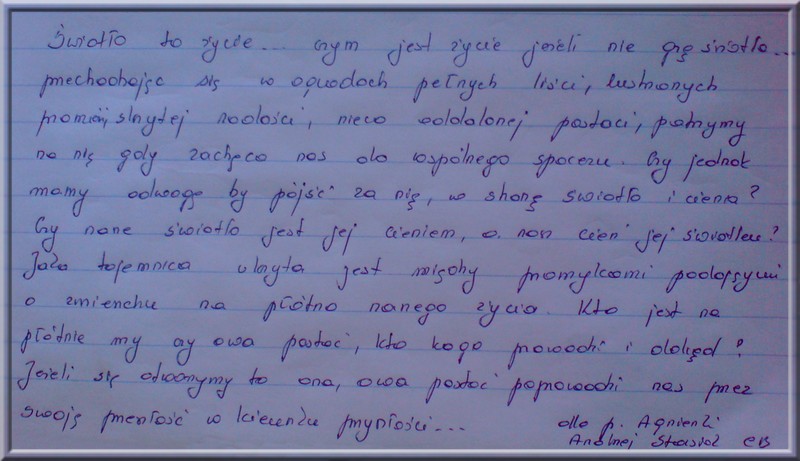 Światło to życie... czym jest życie jeżeli nie grą światła...
przechadzając się w ogrodach pełnych liści, lustrzanych
promieni, skrytej radości, nieco oddalonej postaci, patrzymy
na nią gdy zachęca nas do wspólnego spaceru. Czy jednak
mamy odwagę by pójść za nią, w stronę światła i cienia?
Czy nasze światło jest jej cieniem, a nasz cień jej światłem?
Jaka tajemnica ukryta jest między promykami padającymi
o zmierzchu na płótno naszego życia. Kto jest na
płótnie my czy owa postać, kto kogo prowadzi i dokąd?
Jeżeli się odważymy to ona, owa postać poprowadzi nas przez
swoją przeszłość w kierunku przyszłości...
dla p. Agnieszki
Andrzej